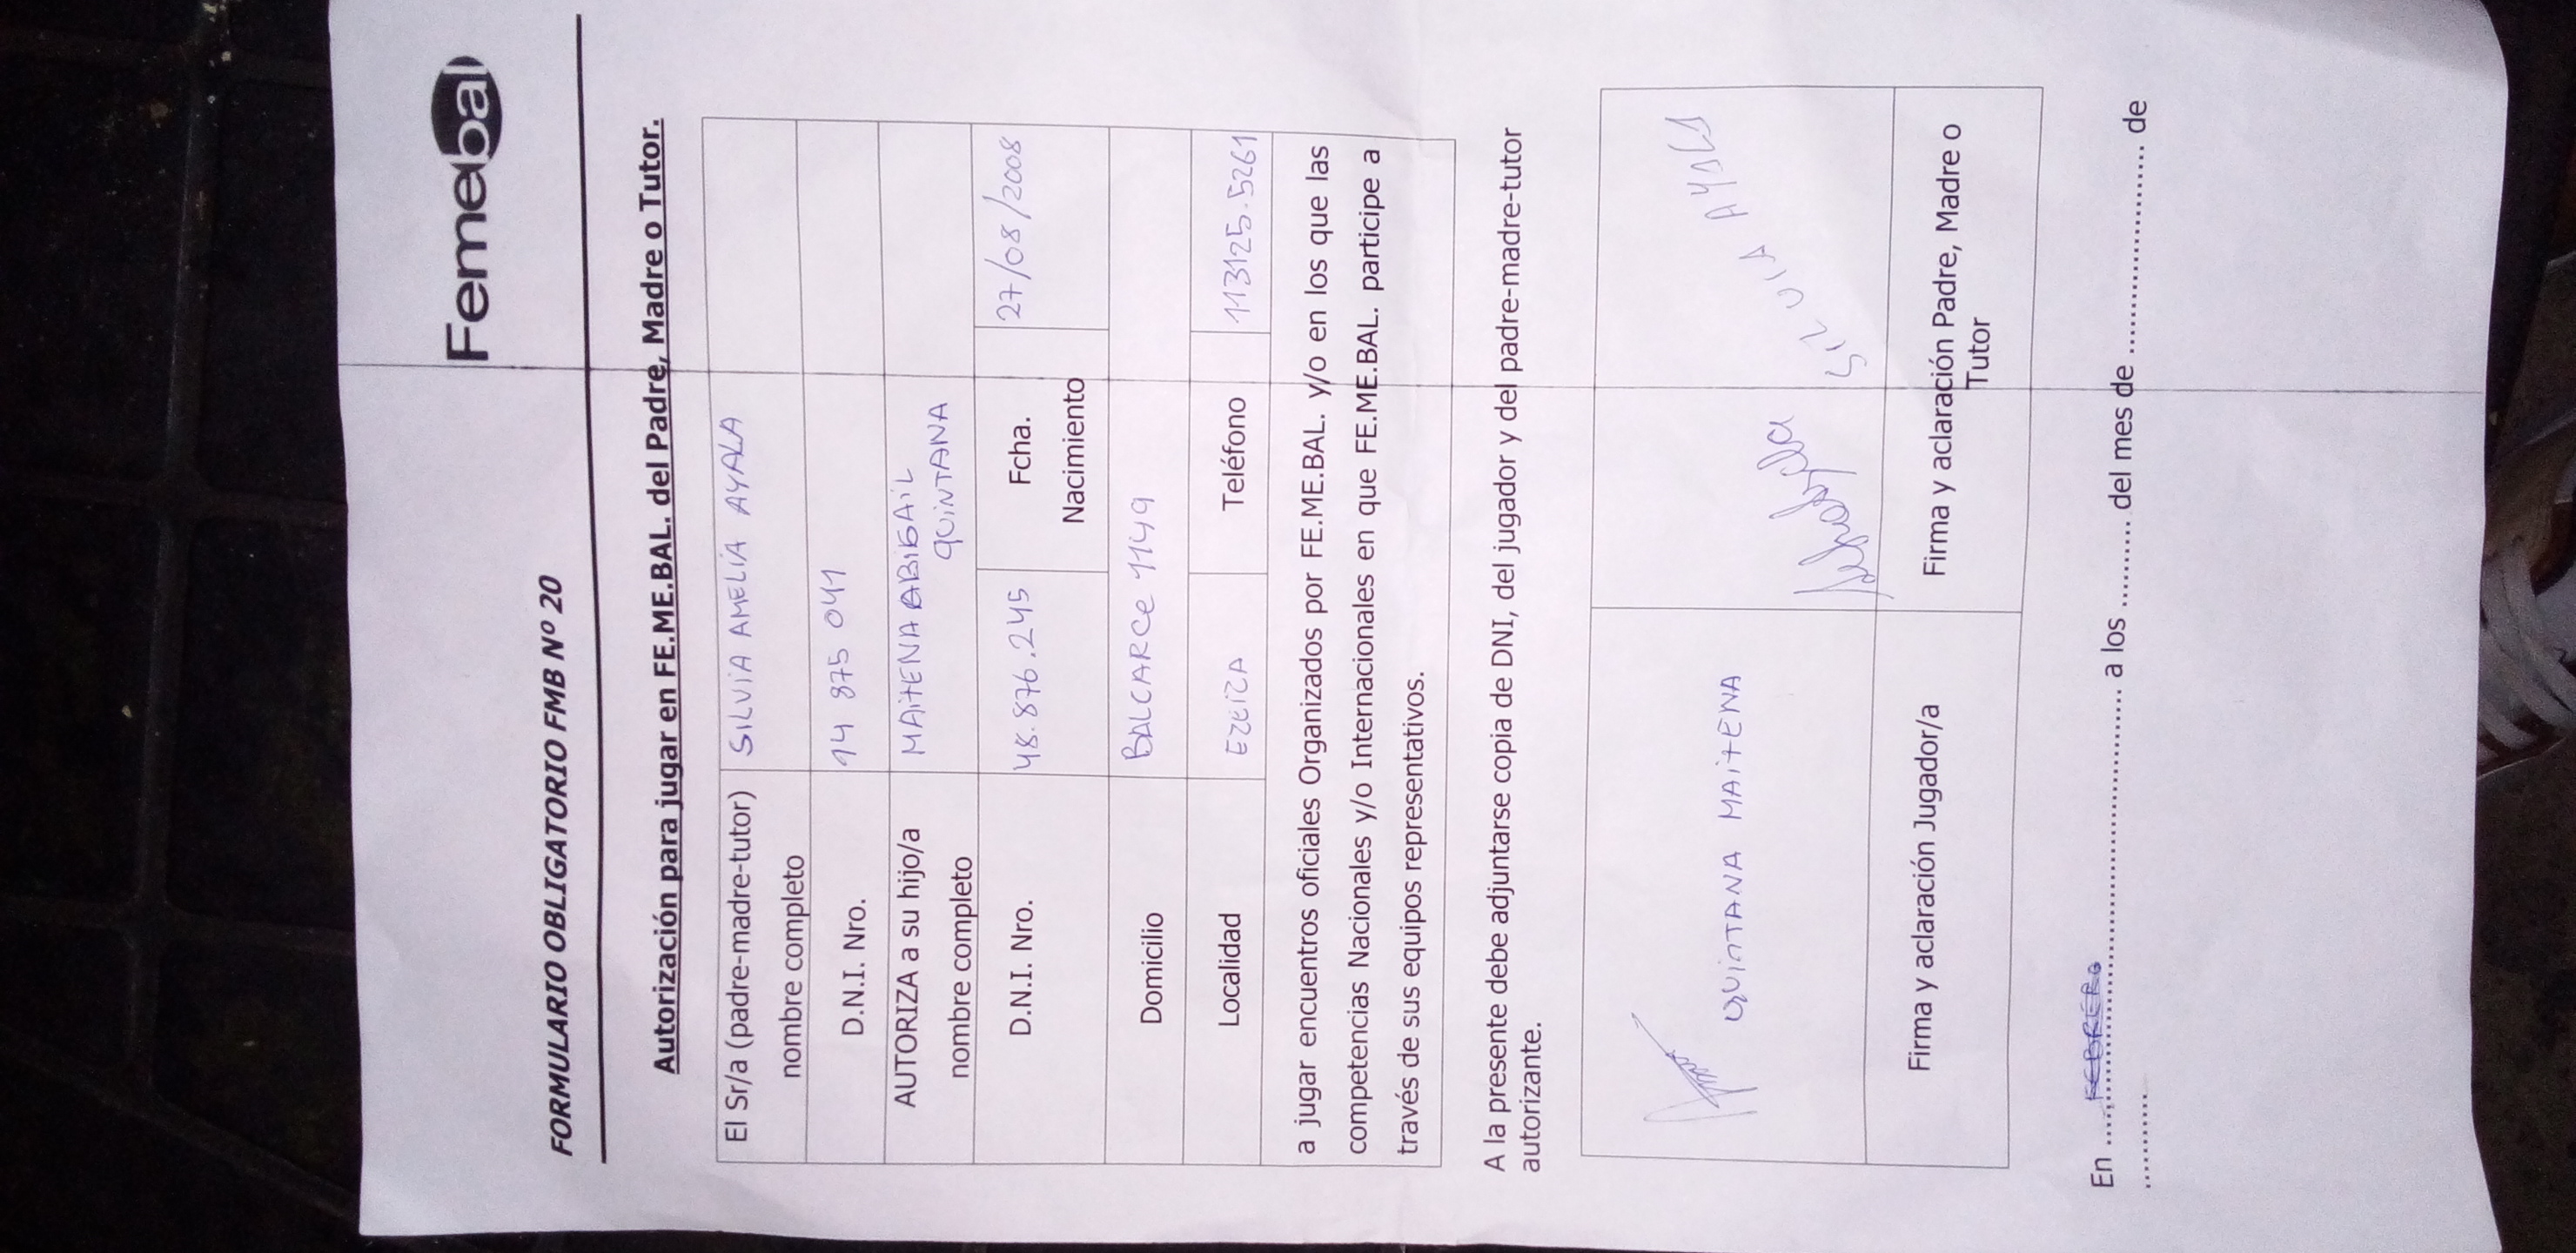 Femebal
FORMULARIO OBLIGATORIO FMB Nº 20
Autorización para jugar en FE.ME.BAL. del Padre, Madre o Tutor.
El Sr/a (padre-madre-tutor) SILVIA AMELIA AYALA
nombre completo
D.N.I. Nro. 14 875 041
AUTORIZA a su hijo/a MAITENA ABIGAIL
nombre completo QUINTANA
D.N.I. Nro. 48.876.245 Fcha. 27/08/2008
Nacimiento
Domicilio BALCARCE 1149
Localidad EZEIZA Teléfono 113125.5261
a jugar encuentros oficiales Organizados por FE.ME.BAL. y/o en los que las
competencias Nacionales y/o Internacionales en que FE.ME.BAL. participe a
través de sus equipos representativos.
A la presente debe adjuntarse copia de DNI, del jugador y del padre-madre-tutor
autorizante.
QUINTANA MAITENA SILVIA AYALA
Firma y aclaración Jugador/a Firma y aclaración Padre, Madre o
Tutor
En ..FEBRERO.............................. a los ......... del mes de ........................ de
...........